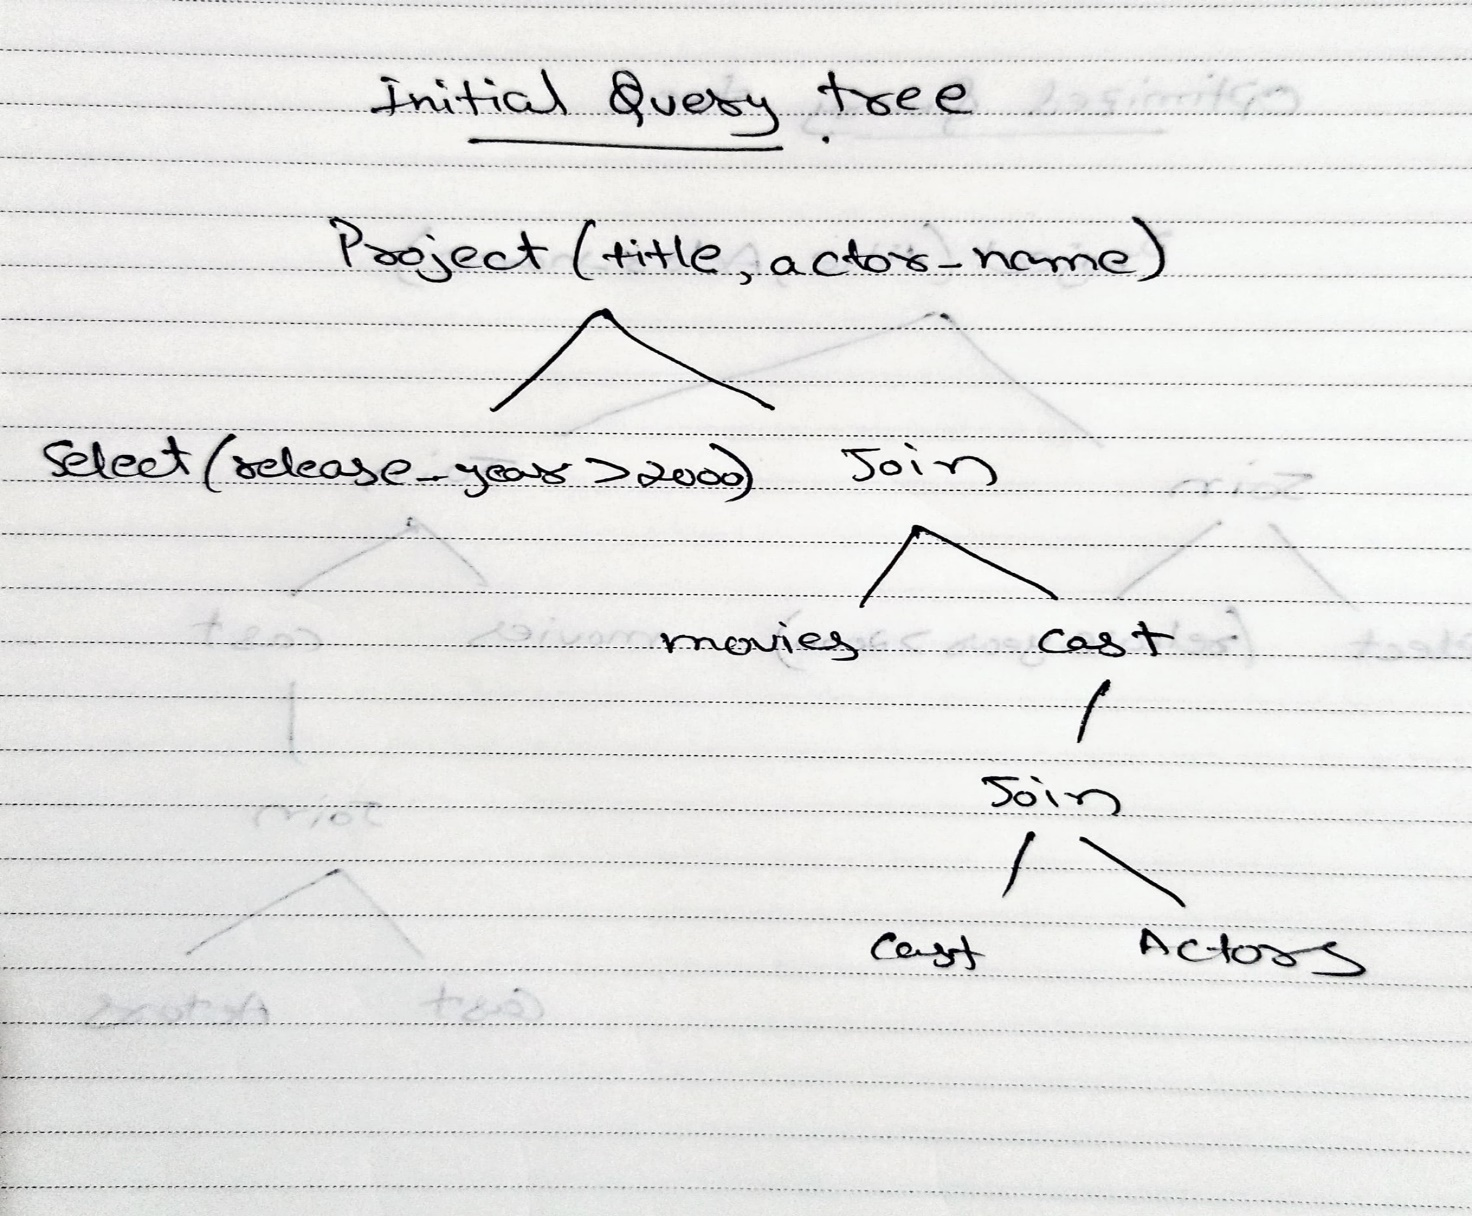 Initial Query tree
Project (title, actor_name)
Select (release_year >2000) Join
movies cast
Join
Cast Actors